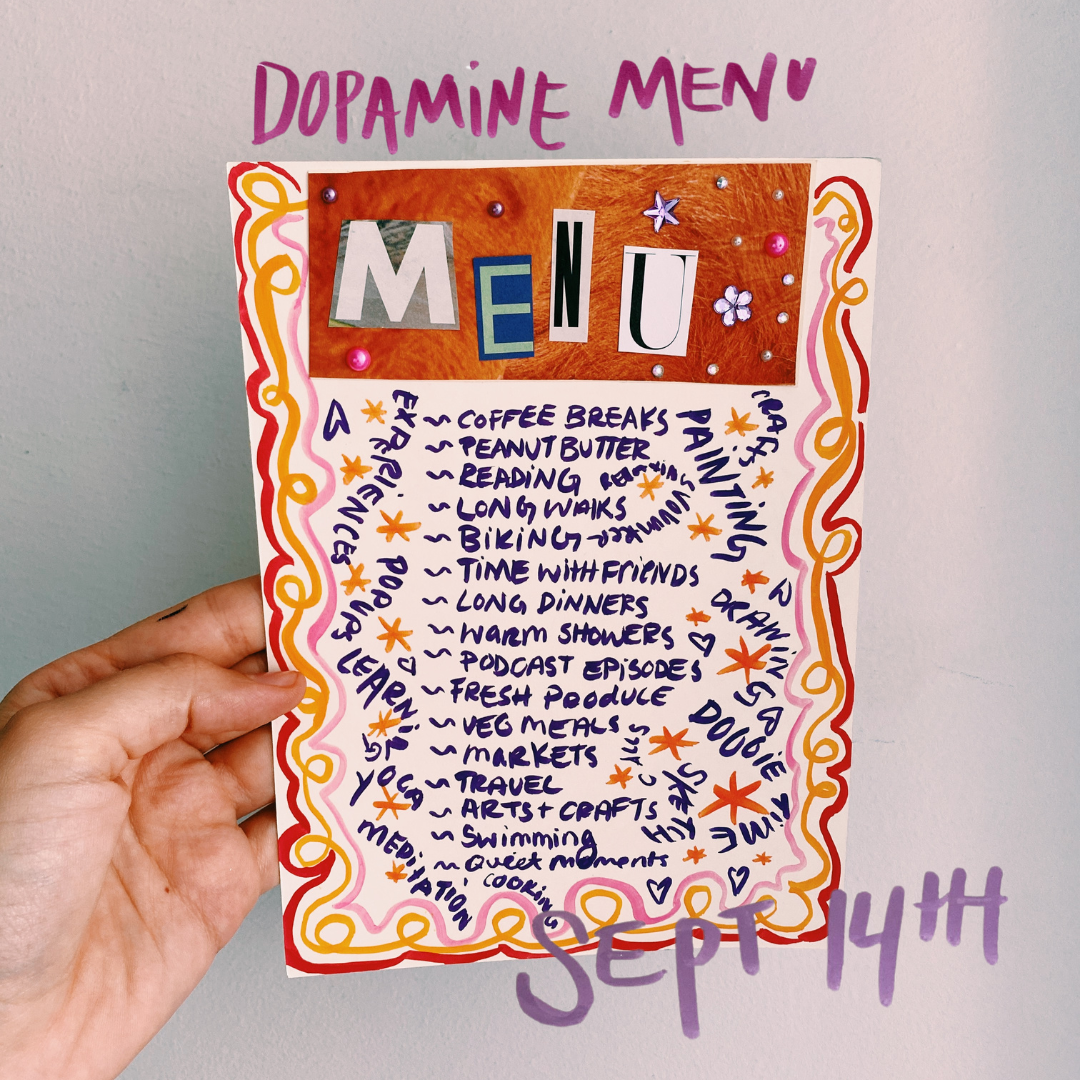 DOPAMINE MENU
MENU
~ COFFEE BREAKS
~ PEANUT BUTTER
~ READING
~ LONG WALKS
~ BIKING
~ TIME WITH FRIENDS
~ LONG DINNERS
~ WARM SHOWERS
~ PODCAST EPISODES
~ FRESH PRODUCE
~ VEG MEALS
~ MARKETS
~ TRAVEL
~ ARTS + CRAFTS
~ Swimming
~ Quiet moments
COOKING
EXPERIENCES
POP UPS
LEARNING
YOGA
MEDITATION
CRAFTS
PAINTING
RELAXING
DRAWING
DOGGIE TIME
CALLS
SKETCH
SEPT 14TH